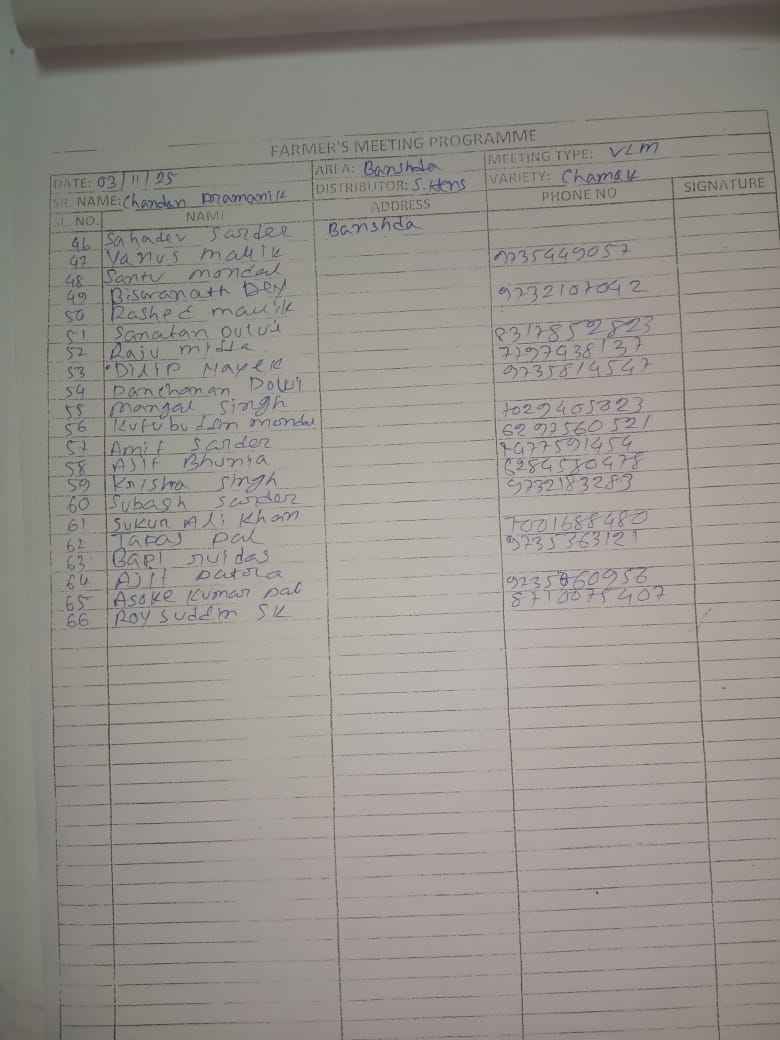 FARMER'S MEETING PROGRAMME
DATE: 03/11/25 AREA: Banshda MEETING TYPE: VLM
SR. NAME: Chandan Pramanik DISTRIBUTOR: S. Hens VARIETY: Chamak
SL. NO. NAME ADDRESS PHONE NO SIGNATURE
46 Sahadev Sarder Banshda
47 Yanus Malik
48 Santu mondal 9735449057
49 Biswanath Dey
50 Rashed mallik 9732107042
51 Sanatan Dului
52 Raju midda 8317852823
53 Dilip Nayek 7797438137
54 Panchanan Dolui 9735814547
55 Mangal Singh
56 Kutubuddin mondal 7029405323
57 Amit Sarder 6297560521
58 Ajit Bhunia 7477591454
59 Krisha Singh 6284580478
60 Subash Sarder 9732183283
61 Sukur Ali Khan
62 Tapas pal 7001688480
63 Bapi ruidas 9735363121
64 Ajit patra
65 Asoke Kumar pal 9235860956
66 Roysuddin SK 8710075407